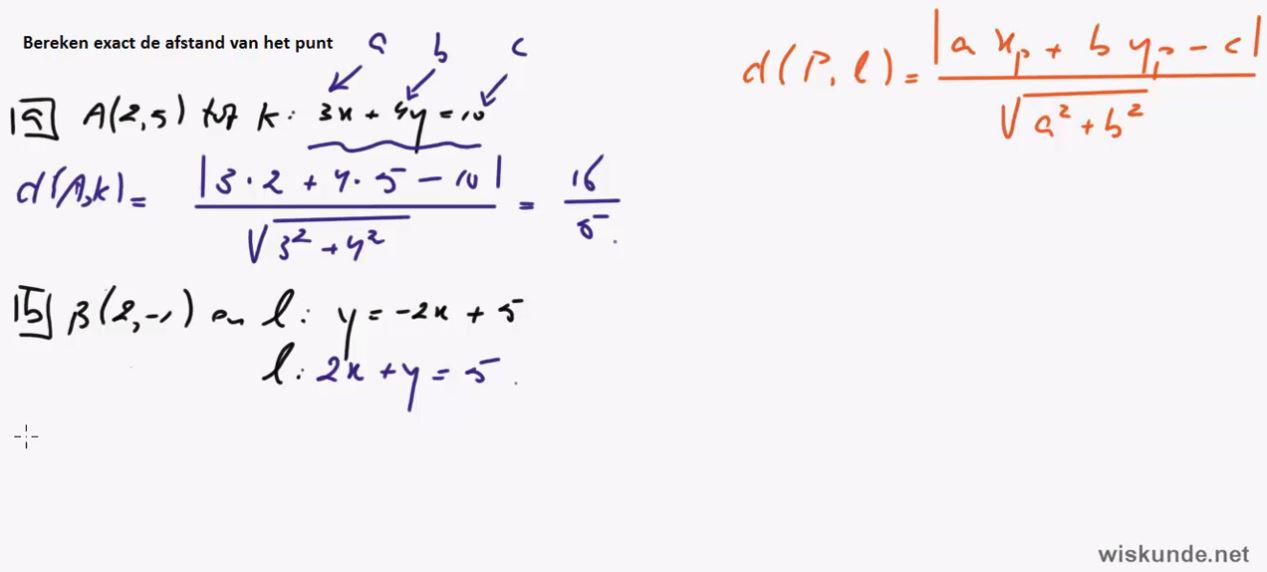 Bereken exact de afstand van het punt
a b c
1a A(2,5) tot k: 3x + 4y = 10
d(A,k) = |3·2 + 4·5 - 10| / √(3² + 4²) = 16/5.
1b B(2,-1) en l: y = -2x + 5
l: 2x + y = 5.
d(P,l) = |a xₚ + b yₚ - c| / √(a² + b²)
wiskunde.net